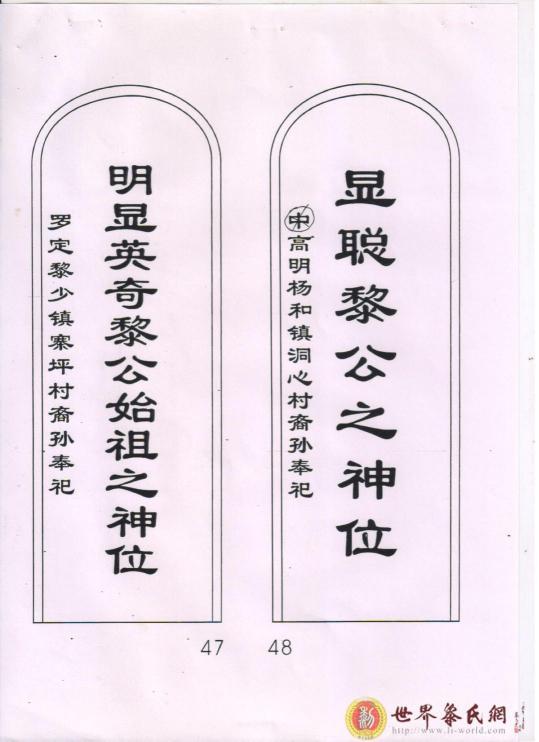 显聪黎公之神位
中高明杨和镇洞心村裔孙奉祀
明显英奇黎公始祖之神位
罗定黎少镇寨坪村裔孙奉祀
47 48
世界黎氏網
http://www.li-world.com